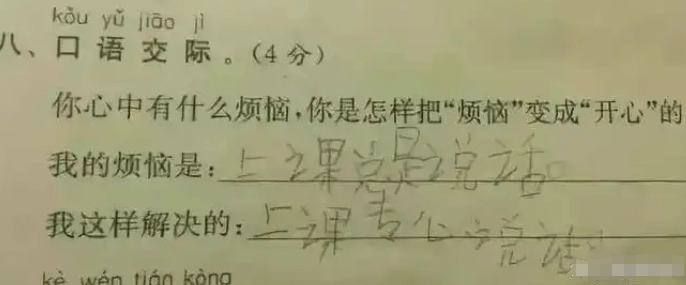 kǒu yǔ jiāo jì
八、口语交际。(4分)
你心中有什么烦恼,你是怎样把“烦恼”变成“开心”的
我的烦恼是:上课总是说话。
我这样解决的:上课专心说话。
kè wén tián kòng